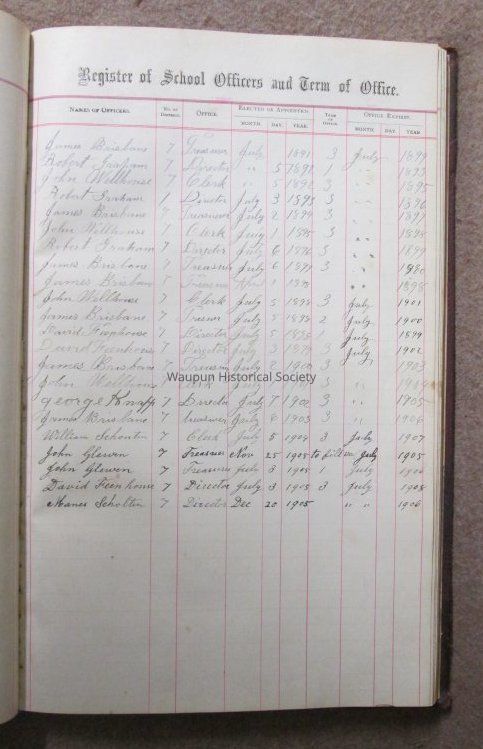 Register of School Officers and Term of Office.
NAMES OF OFFICERS. NO. OF DISTRICT. OFFICE. ELECTED OR APPOINTED. MONTH. DAY. YEAR. TERM OF OFFICE. OFFICE EXPIRES. MONTH. DAY. YEAR
James Brisbane 7 Treasurer July 1891 3 July
Robert Graham 7 Director " 5 1892 1 " "
John Wellhouse 7 Clerk " 5 1892 3 " " 1895
Robert Graham 1 Director July 3 1893 3 " " 1896
James Brisbane 7 Treasurer July 2 1894 3 " " 1897
John Wellhouse 7 Clerk July 1 1895 3 " " 1898
Robert Graham 7 Director July 6 1896 3 " 1899
James Brisbane 7 Treasurer July 6 3 "
James Brisbane 7 Treasurer 1898
John Wellhouse 7 Clerk July 5 1898 3 July 1901
James Brisbane 7 July 5 1898 2 July 1900
David 7 Director July 5 1898 1 July 1899
David Feenhouse 7 Director July 3 1899 3 July 1902
James Brisbane 7 July 1900 3 1903
Waupun Historical Society
John 3 " 1904
George Knapp 7 Director July 7 1902 3 " 1905
James Brisbane 7 Treasurer July 6 1903 3 " 1906
William Schouten 7 Clerk July 5 1904 3 July 1907
John Glewen 7 Treasurer Nov 25 1905 to July 1905
John Glewen 7 Treasurer July 3 1905 1 July 1906
David Feenhouse 7 Director July 3 1905 3 July 1908
Scholten 7 Director Dec 20 1905 " " 1906